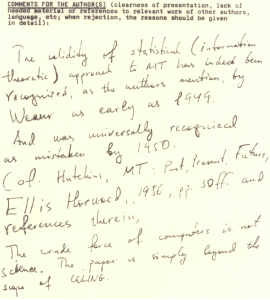 COMMENTS FOR THE AUTHOR(S) (clearness of presentation, lack of
needed material or references to relevant work of other authors,
language, etc; when rejection, the reasons should be given
in detail):
The validity of statistical (information
theoretic) approach to MT has indeed been
recognized, as the authors mention, by
Weaver as early as 1949.
And was universally recognized
as mistaken by 1950.
(cf. Hutchins, MT: Past, Present, Future,
Ellis Horwood, 1986, pp. 30ff. and
references therein.
The crude force of computers is not
science. The paper is simply beyond the
scope of COLING.